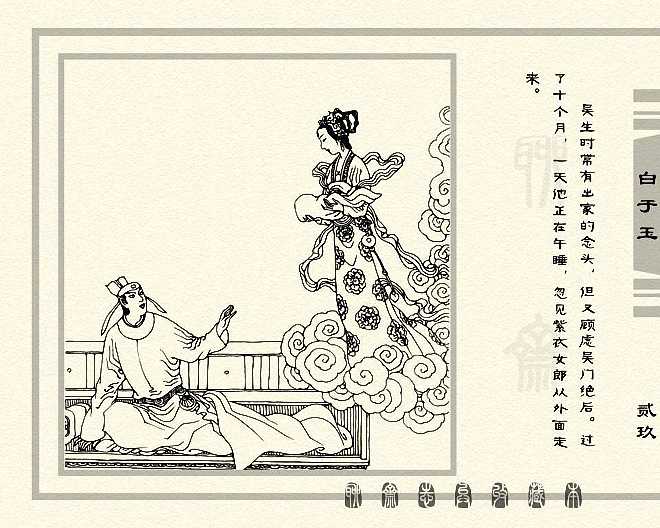 白于玉
贰玖
吴生时常有出家的念头，但又顾虑吴门绝后。过
了十个月，一天他正在午睡，忽见紫衣女郎从外面走
来。
聊斋志异收藏本